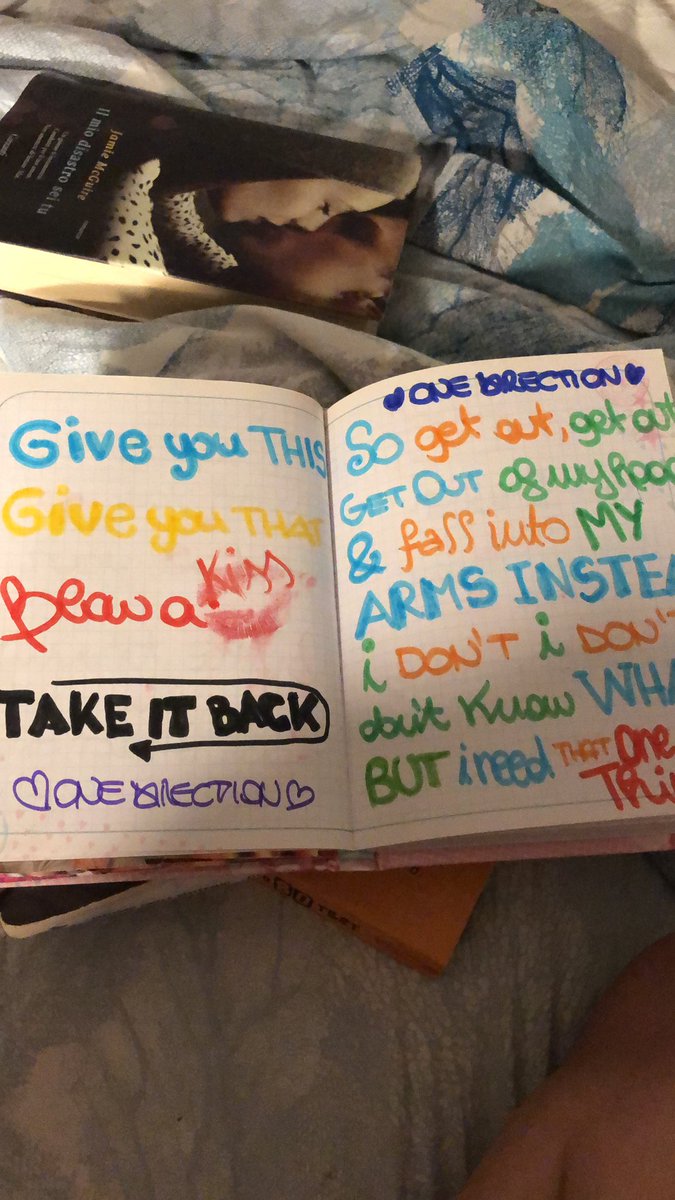 Il mio disastro sei tu
Jamie McGuire
Garzanti
Give you THIS
Give you THAT
Blow a Kiss
TAKE IT BACK
ONE DIRECTION
ONE DIRECTION
So get out, get out
GET OUT of my head
& fall into MY
ARMS INSTEA
i DON'T i DON'T
don't Know WHA
BUT i need THAT One
Thi
TEST